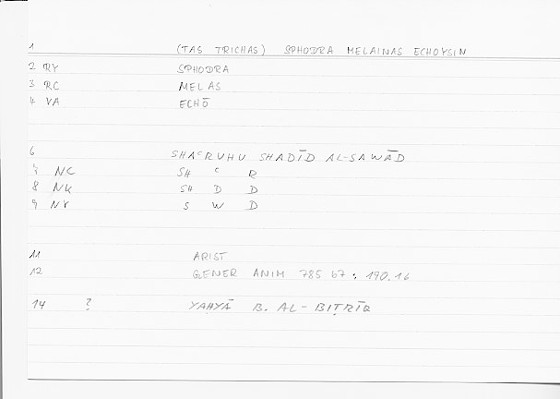 1 (TAS TRICHAS) SPHODRA MELAINAS ECHOYSIN
2 RY SPHODRA
3 RC MELAS
4 VA ECHŌ
6 SHAʿRUHU SHADĪD AL-SAWĀD
7 NC SH ʿ R
8 NK SH D D
9 NK S W D
11 ARIST
12 GENER ANIM 785 b7 : 190.16
14 ? YAHYĀ B. AL-BIṬRĪQ